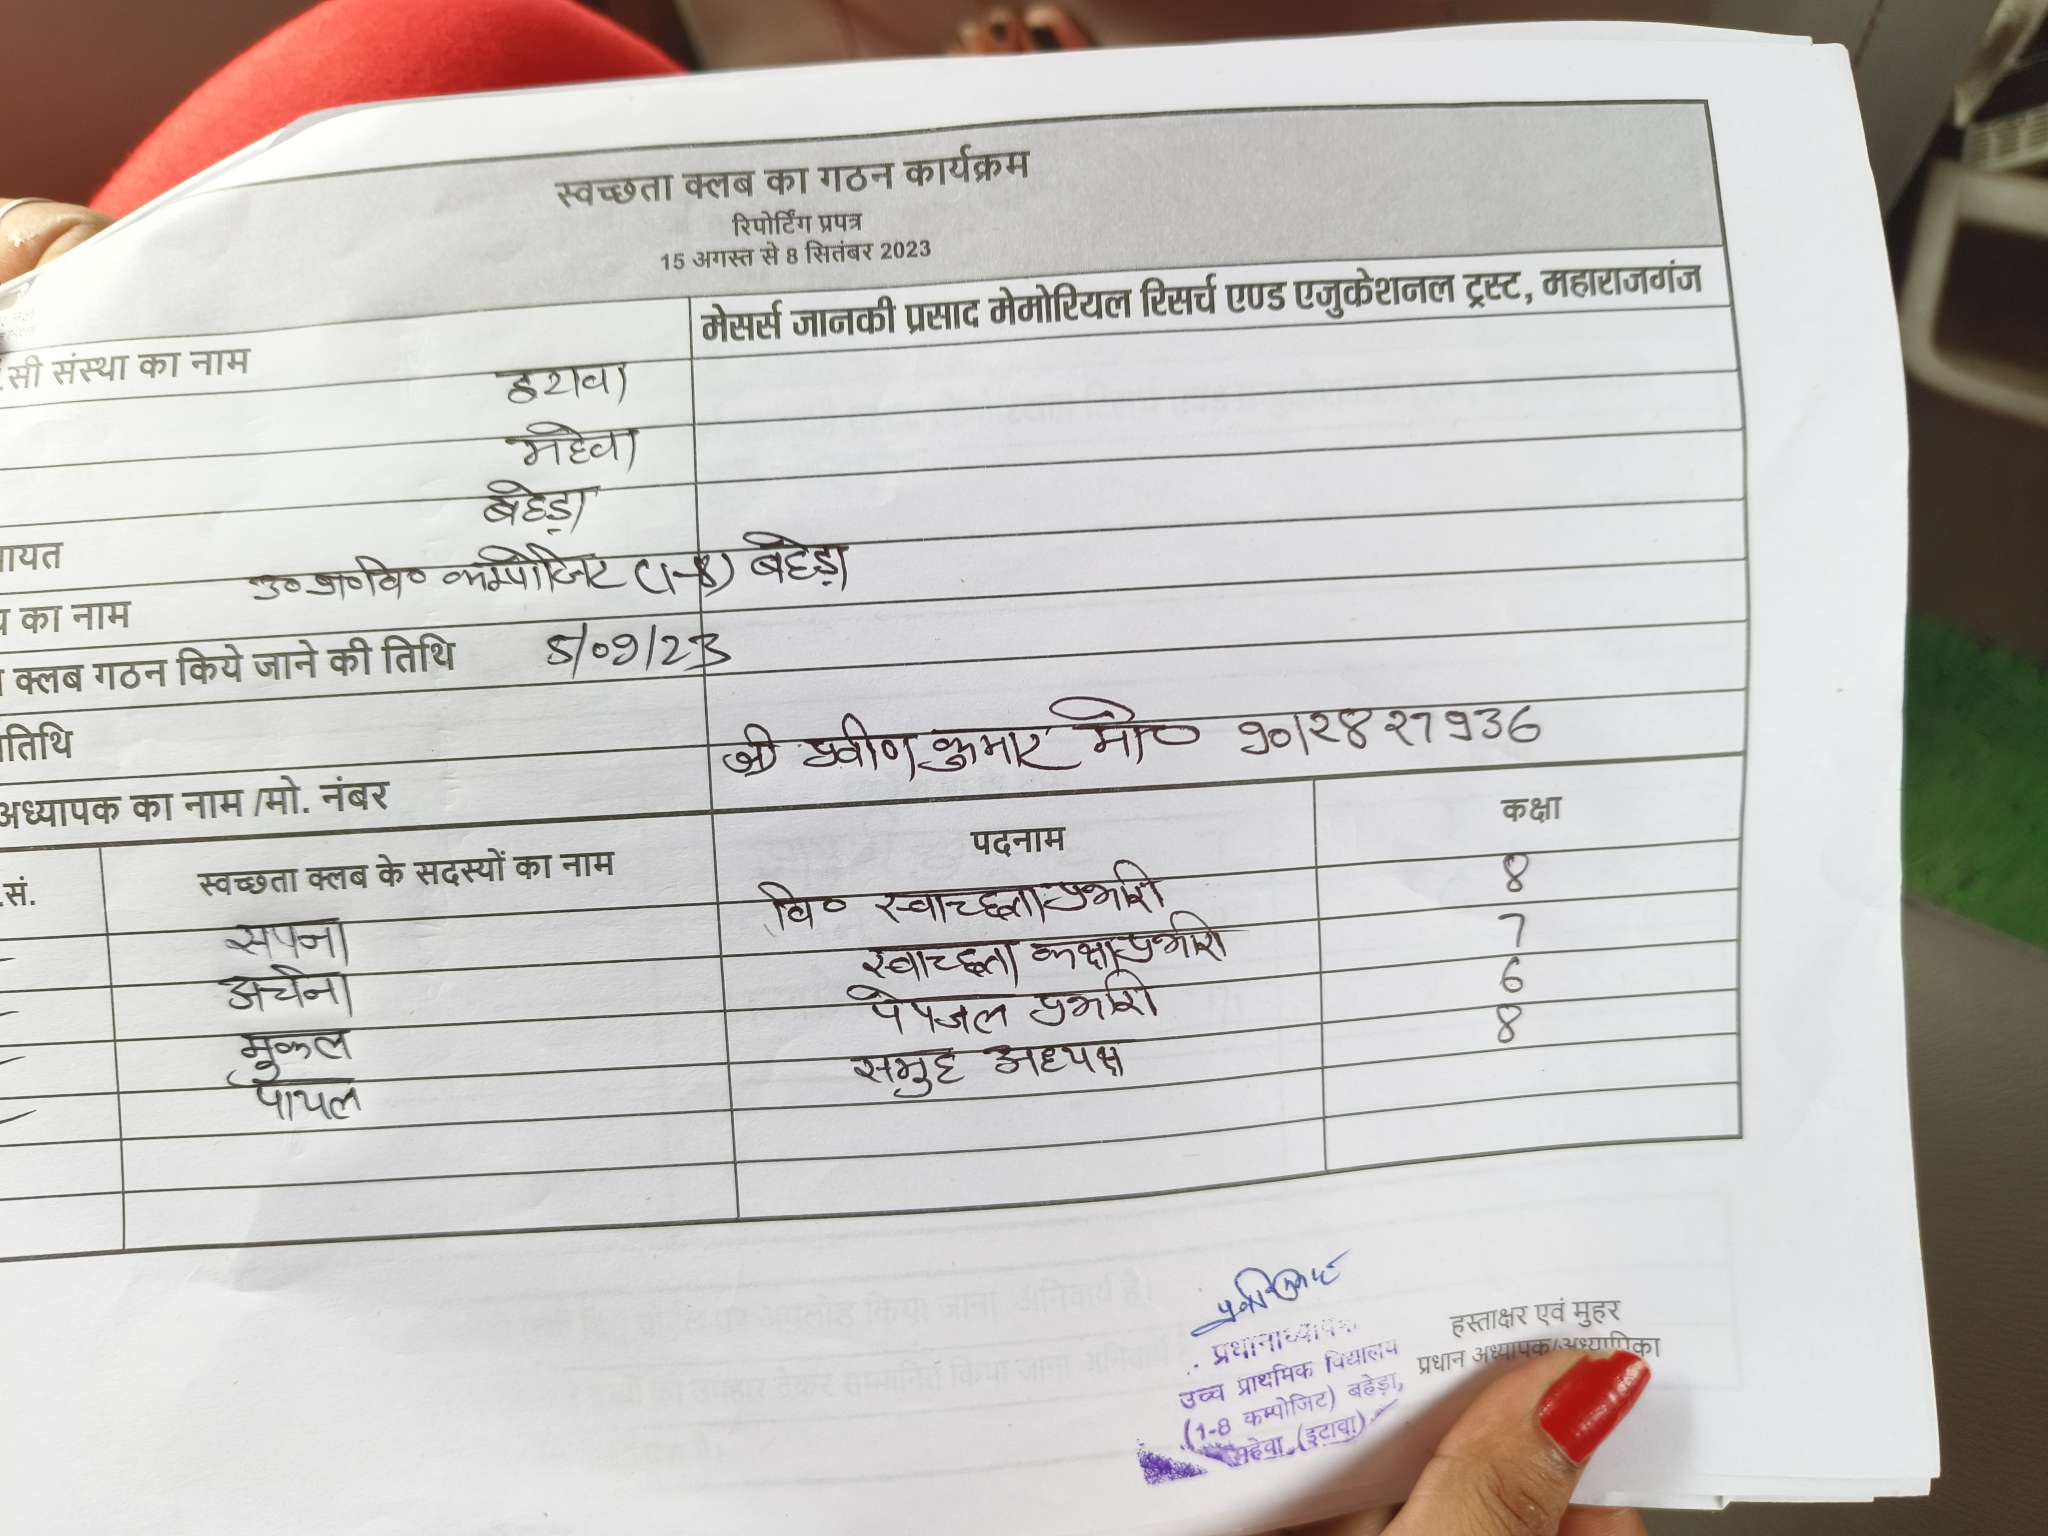 स्वच्छता क्लब का गठन कार्यक्रम
रिपोर्टिंग प्रपत्र
15 अगस्त से 8 सितंबर 2023
सी संस्था का नाम मेसर्स जानकी प्रसाद मेमोरियल रिसर्च एण्ड एजुकेशनल ट्रस्ट, महाराजगंज
इटावा
महेवा
ायत बहेड़ा
य का नाम उ०प्रा०वि० कम्पोजिट (1-8) बहेड़ा
क्लब गठन किये जाने की तिथि 5/09/23
तिथि
अध्यापक का नाम /मो. नंबर श्री प्रवीण कुमार मो० 9012827936
.सं. स्वच्छता क्लब के सदस्यों का नाम पदनाम कक्षा
सपना वि० स्वाच्छता प्रभारी 8
अर्चना स्वाच्छता कक्षा प्रभारी 7
मुकुल पेयजल प्रभारी 6
पायल समुह अध्यक्ष 8
हस्ताक्षर एवं मुहर
प्रधान अध्यापक/अध्यापिका
प्रधानाध्यापक
उच्च प्राथमिक विद्यालय
(1-8 कम्पोजिट) बहेड़ा,
महेवा, (इटावा)